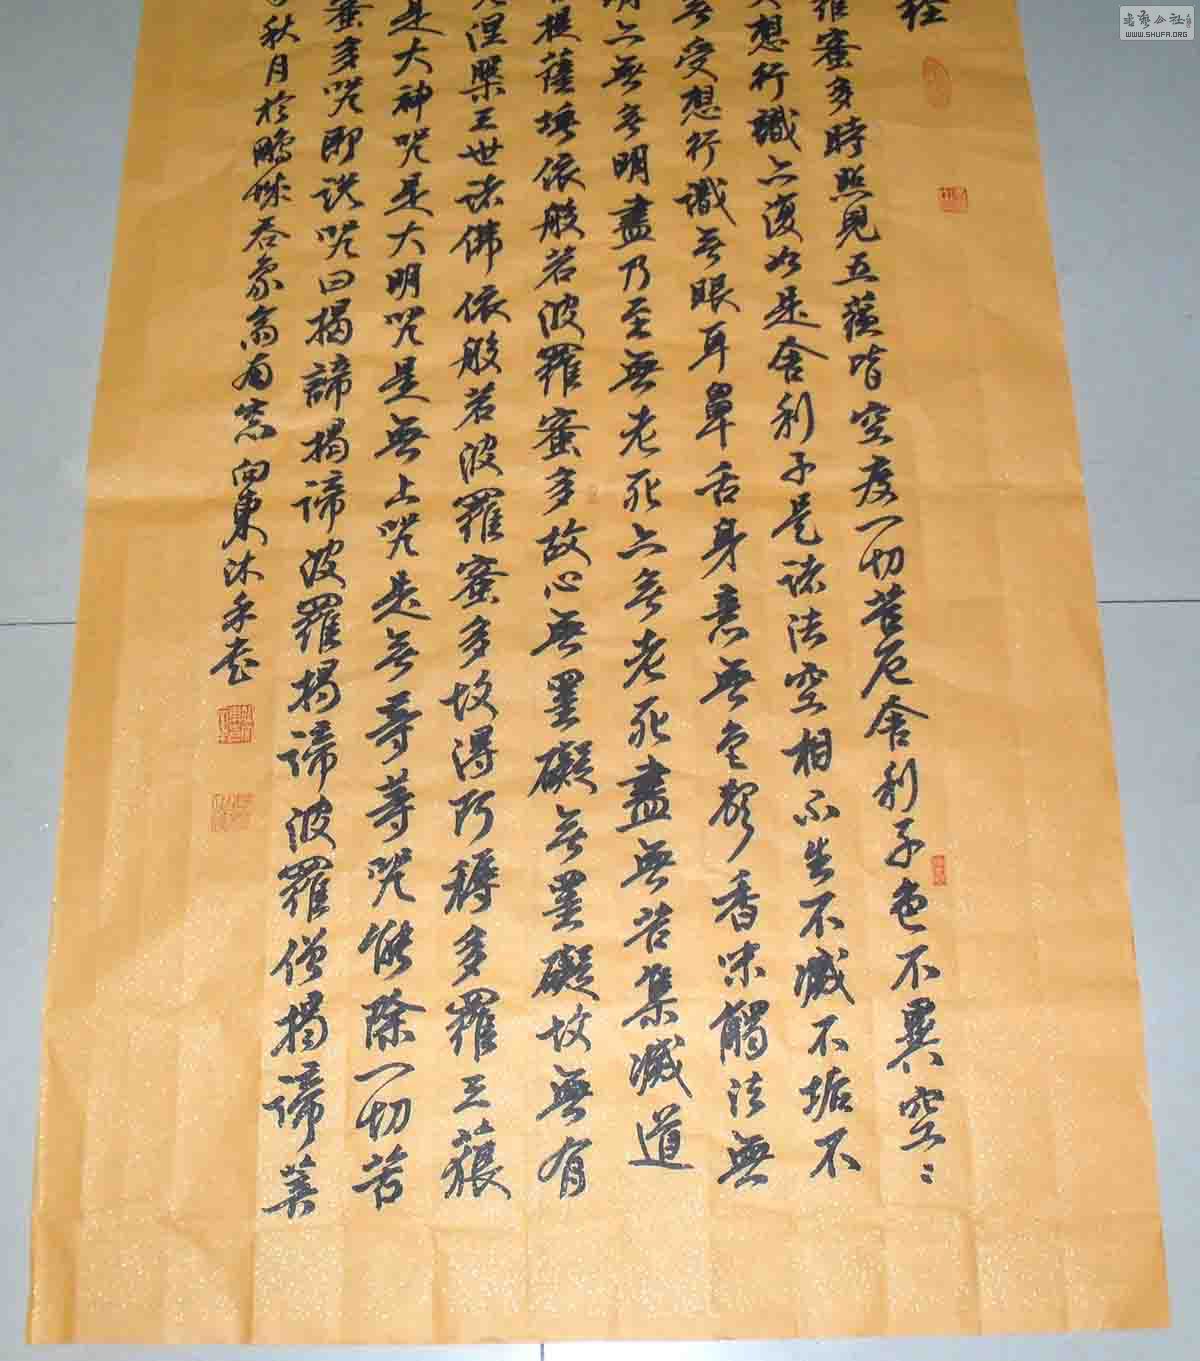 經
羅蜜多時照見五蘊皆空度一切苦厄舍利子色不異空〻
想行識亦復如是舍利子是諸法空相不生不滅不垢不
受想行識無眼耳鼻舌身意無色聲香味觸法無
明亦無無明盡乃至無老死亦無老死盡無苦集滅道
提薩埵依般若波羅蜜多故心無罣礙無罣礙故無有
涅槃三世諸佛依般若波羅蜜多故得阿耨多羅三藐
是大神咒是大明咒是無上咒是無等等咒能除一切苦
蜜多咒即說咒曰揭諦揭諦波羅揭諦波羅僧揭諦菩
秋月於鵬城吞象齋南窗向東沐手書
WWW.SHUFA.ORG